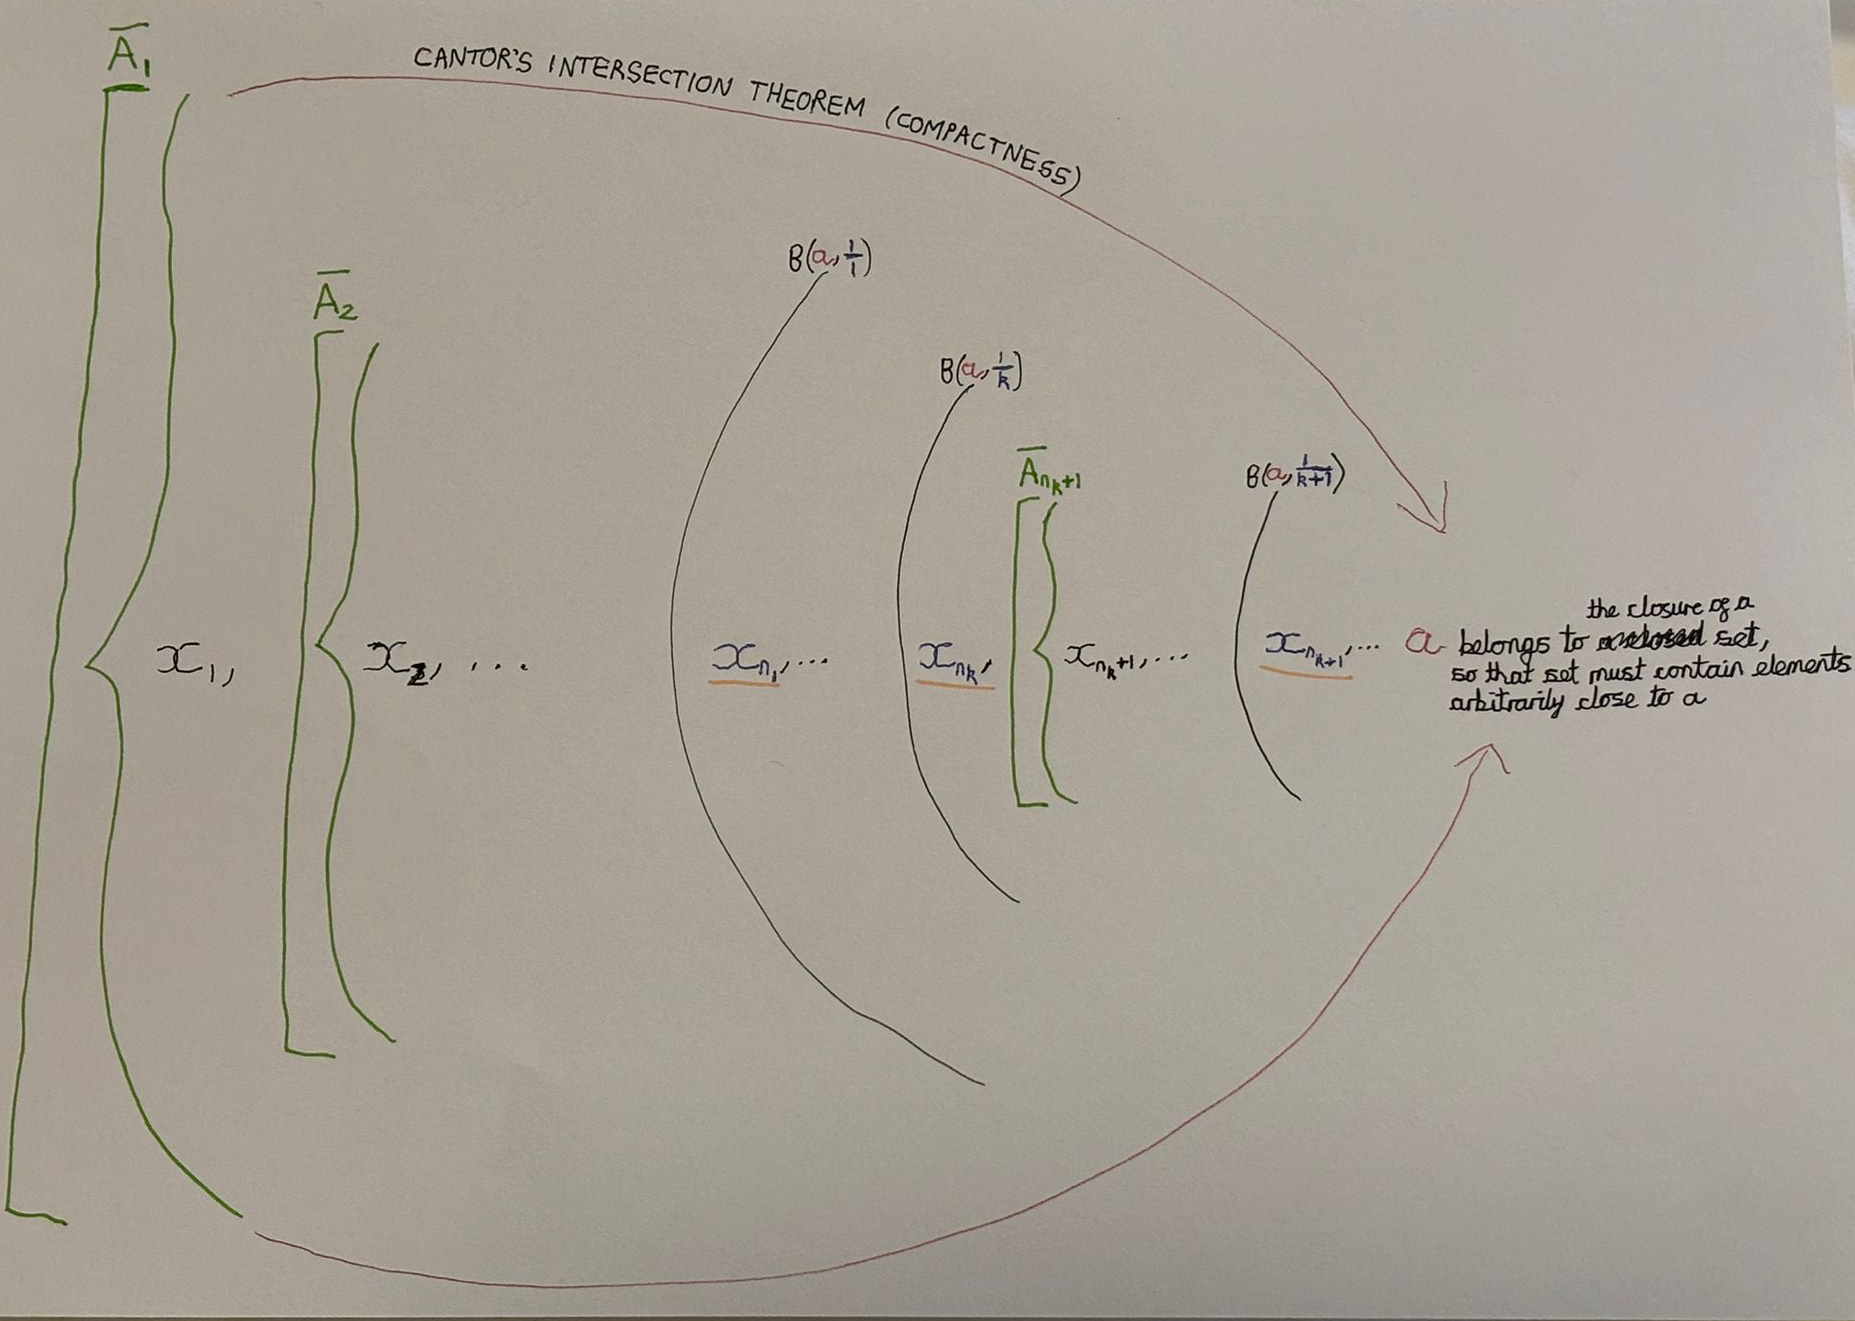 A̅₁
CANTOR'S INTERSECTION THEOREM (COMPACTNESS)
B(a, 1/1)
A̅₂
B(a, 1/k)
A̅ₙₖ₊₁
B(a, 1/(k+1))
x₁, x₂, ... xₙ₁, ... xₙₖ, xₙₖ₊₁, ... xₙₖ₊₁, ... a
the closure of a
belongs to set,
so that set must contain elements
arbitrarily close to a